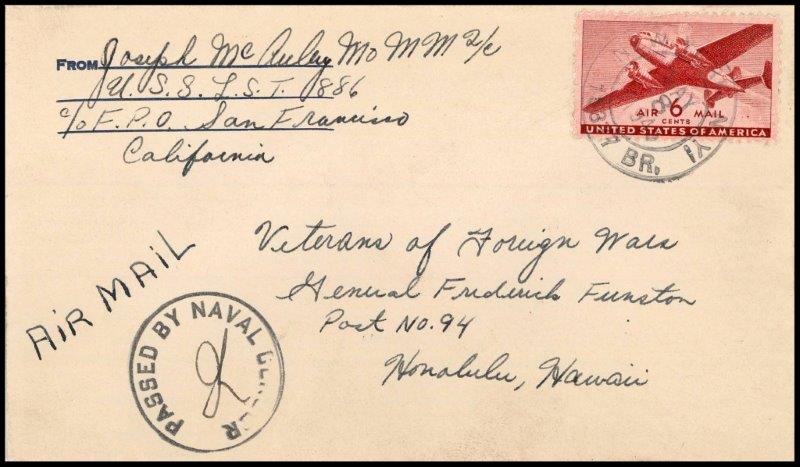 FROM Joseph McAuley MoMM 2/c
U.S.S. L.S.T. 886
c/o F.P.O. San Francisco
California
AIR 6 MAIL
CENTS
UNITED STATES OF AMERICA
BR.
Veterans of Foreign Wars
General Frederick Funston
Post No. 94
Honolulu, Hawaii
AIR MAIL
PASSED BY NAVAL CENSOR